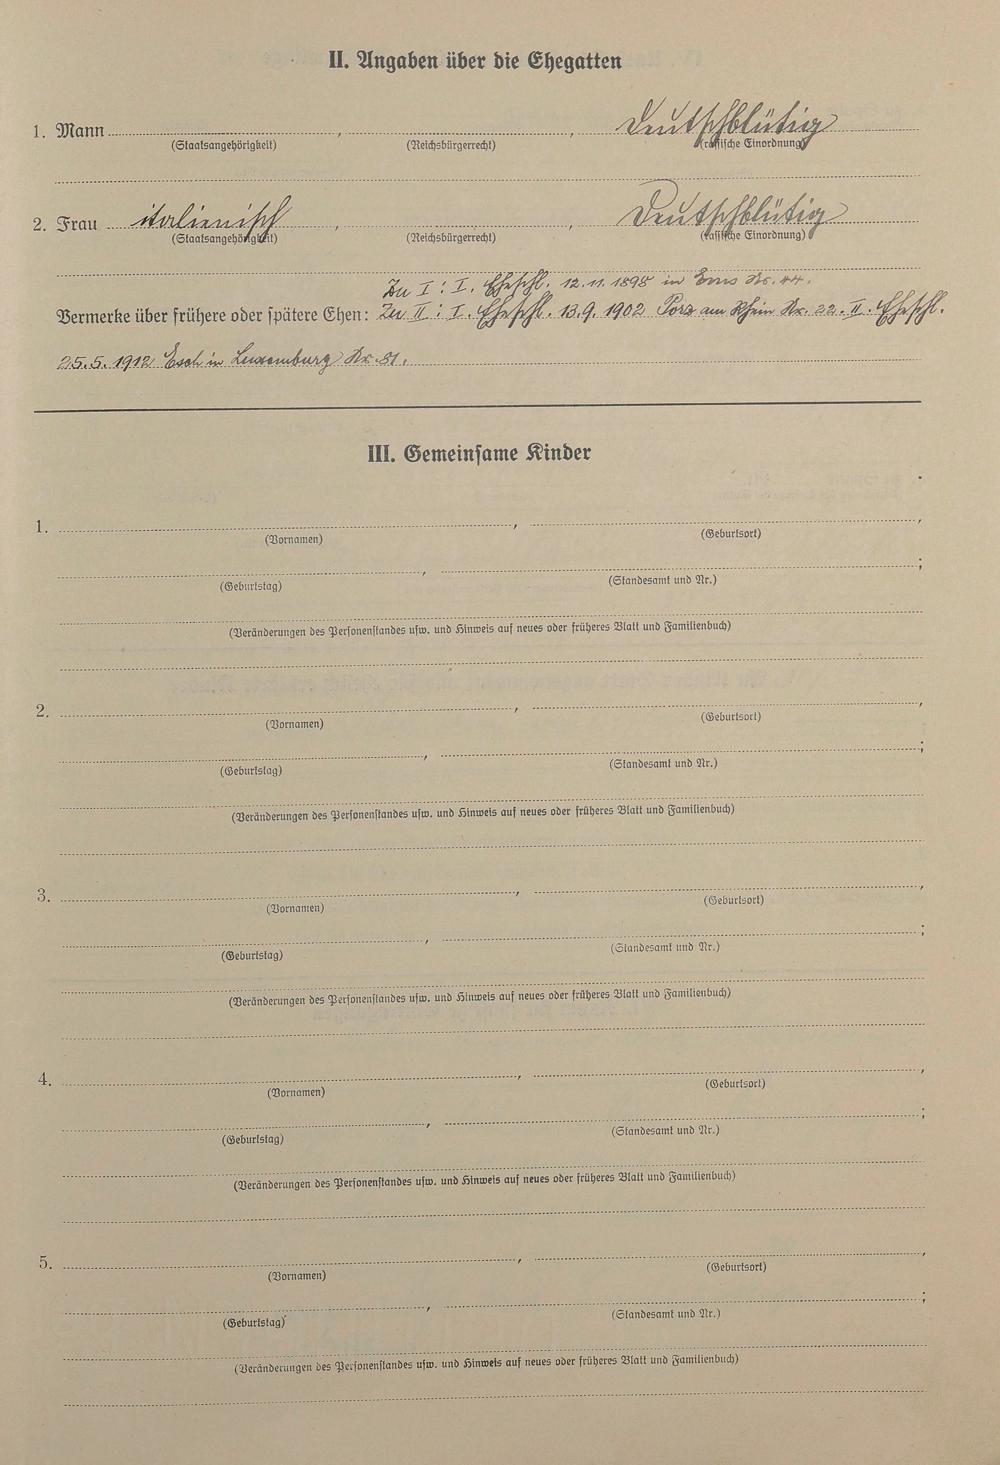 II. Angaben über die Ehegatten
1. Mann , , Deutschblütig
(Staatsangehörigkeit) (Reichsbürgerrecht) (rassische Einordnung)
2. Frau italienisch , , Deutschblütig
(Staatsangehörigkeit) (Reichsbürgerrecht) (rassische Einordnung)
Zu I : I. Eheschl. 12.11.1898 in Ems Nr. 44.
Vermerke über frühere oder spätere Ehen: Zu II : I. Eheschl. 13.9.1902 Porz am Rhein Nr. 22. II. Eheschl.
25.5.1912 Esch in Luxemburg Nr. 81.
III. Gemeinsame Kinder
1. ,
(Vornamen) (Geburtsort)
, ;
(Geburtstag) (Standesamt und Nr.)
(Veränderungen des Personenstandes usw. und Hinweis auf neues oder früheres Blatt und Familienbuch)
2. , ,
(Vornamen) (Geburtsort)
, ;
(Geburtstag) (Standesamt und Nr.)
(Veränderungen des Personenstandes usw. und Hinweis auf neues oder früheres Blatt und Familienbuch)
3. , ,
(Vornamen) (Geburtsort)
, ;
(Geburtstag) (Standesamt und Nr.)
(Veränderungen des Personenstandes usw. und Hinweis auf neues oder früheres Blatt und Familienbuch)
4. , ,
(Vornamen) (Geburtsort)
, ;
(Geburtstag) (Standesamt und Nr.)
(Veränderungen des Personenstandes usw. und Hinweis auf neues oder früheres Blatt und Familienbuch)
5. , ,
(Vornamen) (Geburtsort)
, ;
(Geburtstag) (Standesamt und Nr.)
(Veränderungen des Personenstandes usw. und Hinweis auf neues oder früheres Blatt und Familienbuch)